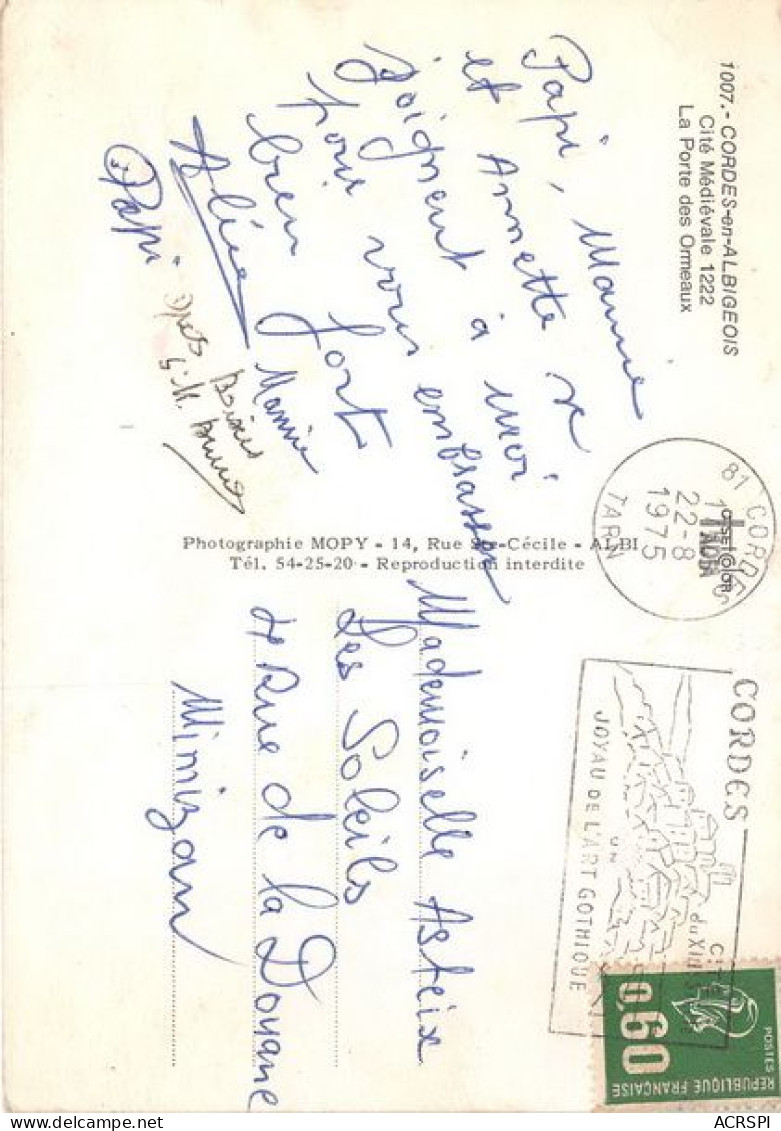 1007.- CORDES-en-ALBIGEOIS
Cité Médiévale 1222
La Porte des Ormeaux
Papi, Mannie
et Annette se
joignent à moi
pour vous embrasser
bien fort
Mannie
Papi
Photographie MOPY - 14, Rue Ste-Cécile - ALBI
Tél. 54-25-20 - Reproduction interdite
81 CORDES
22-8
1975
TARN
CORDES
CITÉ
du XIIIe
UN
JOYAU DE L'ART GOTHIQUE
0,60
POSTES
REPUBLIQUE FRANÇAISE
Mademoiselle Asteix
Les Soleils
Rue de la Douane
Mimizan
ACRSPI